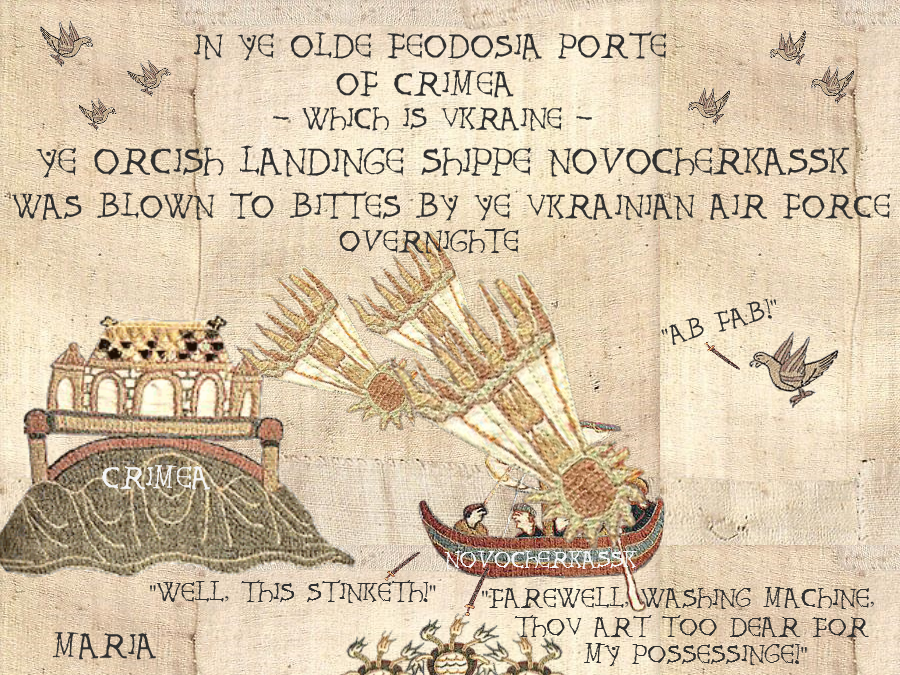 IN YE OLDE FEODOSIA PORTE
OF CRIMEA
- WHICH IS UKRAINE -
YE ORCISH LANDINGE SHIPPE NOVOCHERKASSK
WAS BLOWN TO BITTES BY YE UKRAINIAN AIR FORCE
OVERNIGHTE
"AB FAB!"
CRIMEA
NOVOCHERKASSK
"WELL, THIS STINKETH!"
"FAREWELL, WASHING MACHINE,
THOU ART TOO DEAR FOR
MY POSSESSINGE!"
MARIA